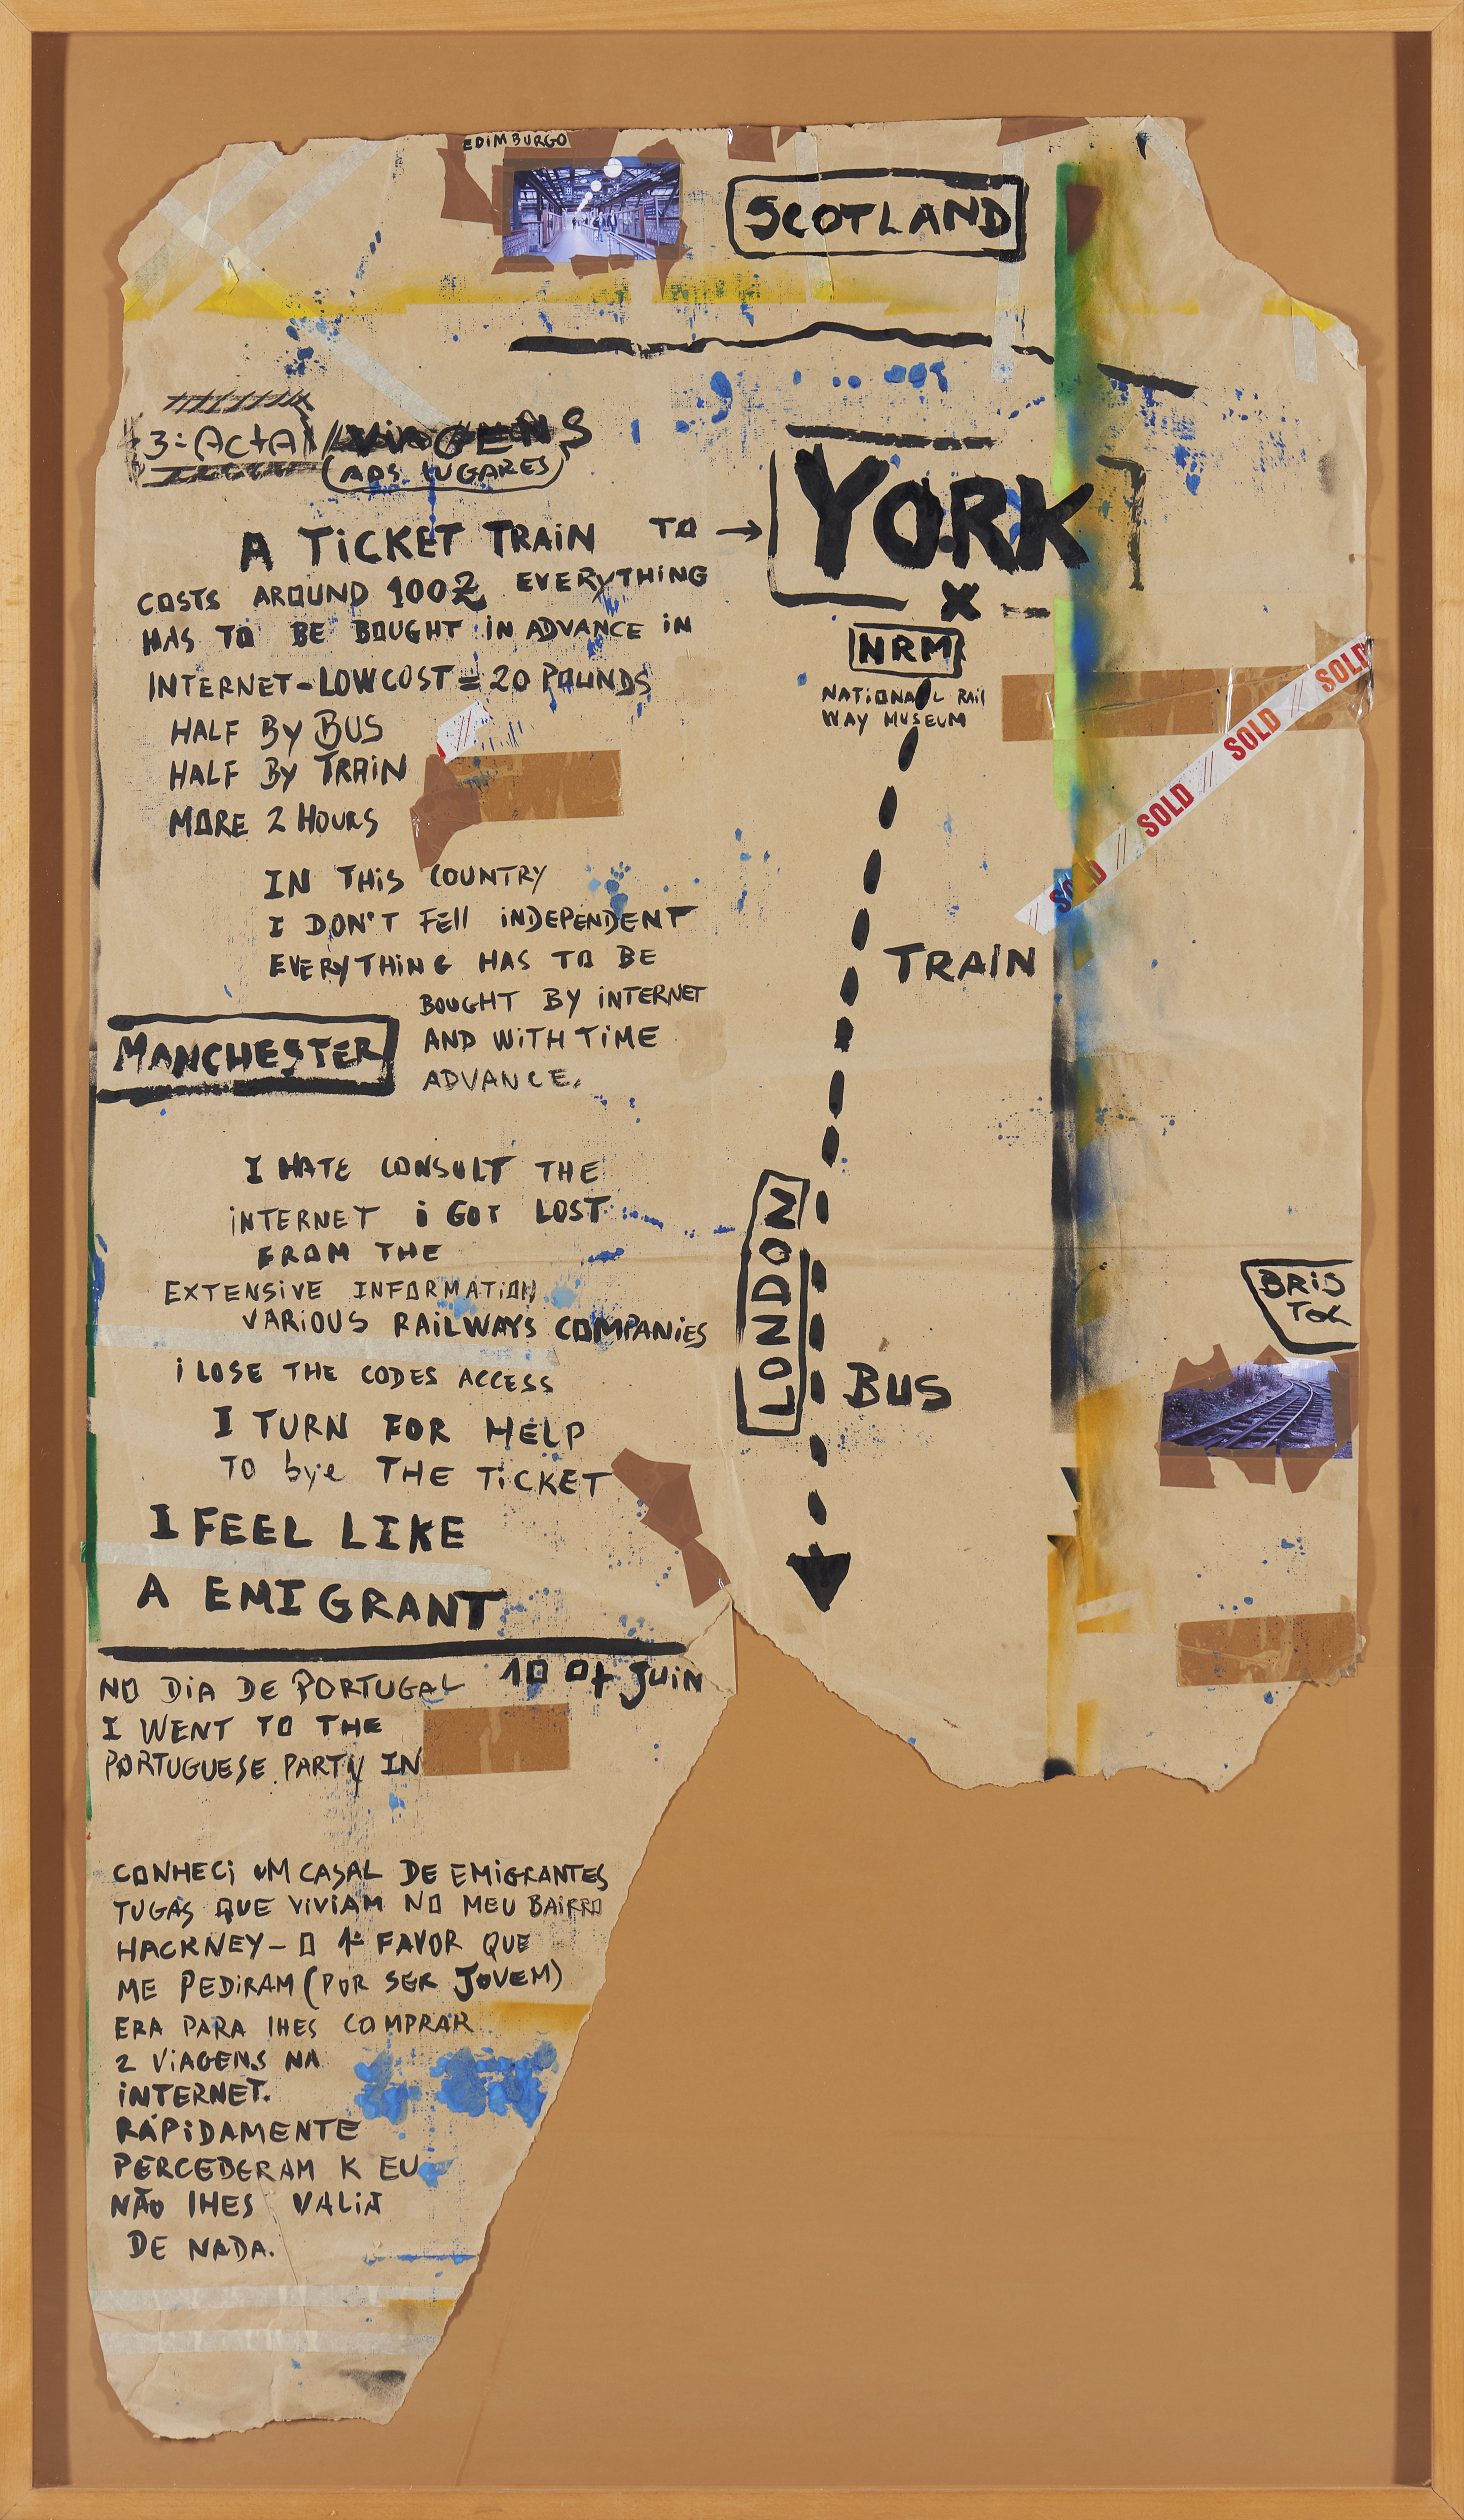 EDIMBURGO
SCOTLAND
3ª ActA / ViAGENS
(AOS LUGARES)
A TiCKET TRAiN TO →
YORK
X
COSTS AROUND 100£ EVERYTHING
HAS TO BE BOUGHT iN ADVANCE iN
INTERNET-LOWCOST = 20 POUNDS
HALF BY BUS
HALF BY TRAiN
MORE 2 HOURS
NRM
NATiONAL RAil
WAY MUSEUM
SOLD // SOLD // SOLD // SOLD
IN THiS COUNTRY
I DON'T FEll iNDEPENDENT
EVERYTHiNG HAS TO BE
BOUGHT BY iNTERNET
AND WiTH TiME
ADVANCE.
MANCHESTER
TRAIN
I HATE CONSULT THE
iNTERNET i GOT LOST
FROM THE
EXTENSIVE INFORMATiON
VARiOUS RAiLWAYS COMPANiES
i LOSE THE CODES ACCESS
I TURN FOR HELP
TO bye THE TiCKET
I FEEL LIKE
A EMIGRANT
LONDON
BUS
BRiS
TOL
NO DiA DE PORTUGAL 10 Of JUiN
I WENT TO THE
PORTUGUESE PARTY IN
CONHECi UM CASAL DE EMiGRANTES
TUGAS QUE ViViAM NO MEU BAiRRO
HACKNEY - O 1º FAVOR QUE
ME PEDiRAM (POR SER JOVEM)
ERA PARA lHES COMPRAR
2 ViAGENS NA
iNTERNET.
RÁPiDAMENTE
PERCEBERAM K EU
NÃO lHES VALiA
DE NADA.